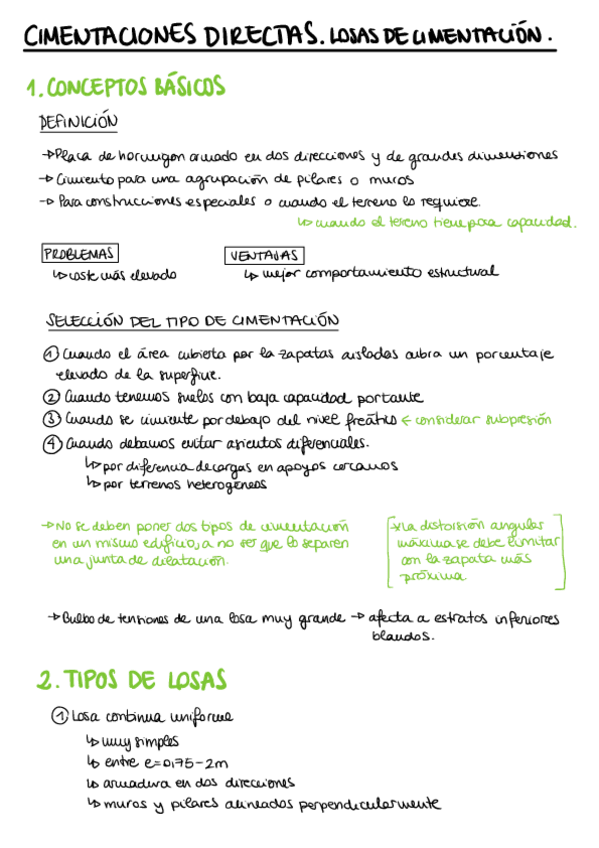 CIMENTACIONES DIRECTAS. LOSAS DE CIMENTACIÓN.
1. CONCEPTOS BÁSICOS
DEFINICIÓN
→ Placa de hormigon armado en dos direcciones y de grandes dimensiones
→ Cimiento para una agrupación de pilares o muros
→ Para construcciones especiales o cuando el terreno lo requiere.
↳ cuando el terreno tiene poca capacidad.
PROBLEMAS
↳ coste más elevado
VENTAJAS
↳ mejor comportamiento estructural
SELECCIÓN DEL TIPO DE CIMENTACIÓN
① Cuando el área cubierta por la zapatas aisladas cubra un porcentaje
elevado de la superficie.
② Cuando tenemos suelos con baja capacidad portante
③ Cuando se cimiente por debajo del nivel freático ← considerar subpresión
④ Cuando debamos evitar asientos diferenciales.
↳ por diferencia de cargas en apoyos cercanos
↳ por terrenos heterogéneos
→ No se deben poner dos tipos de cimentación
en un mismo edificio, a no ser que lo separen
una junta de dilatación.
* La distorsión angular
máxima se debe limitar
con la zapata más
próxima.
→ Bulbo de tensiones de una losa muy grande → afecta a estratos inferiores
blandos.
2. TIPOS DE LOSAS
① Losa continua uniforme
↳ muy simples
↳ entre e=0,75-2m
↳ armadura en dos direcciones
↳ muros y pilares alineados perpendicularmente